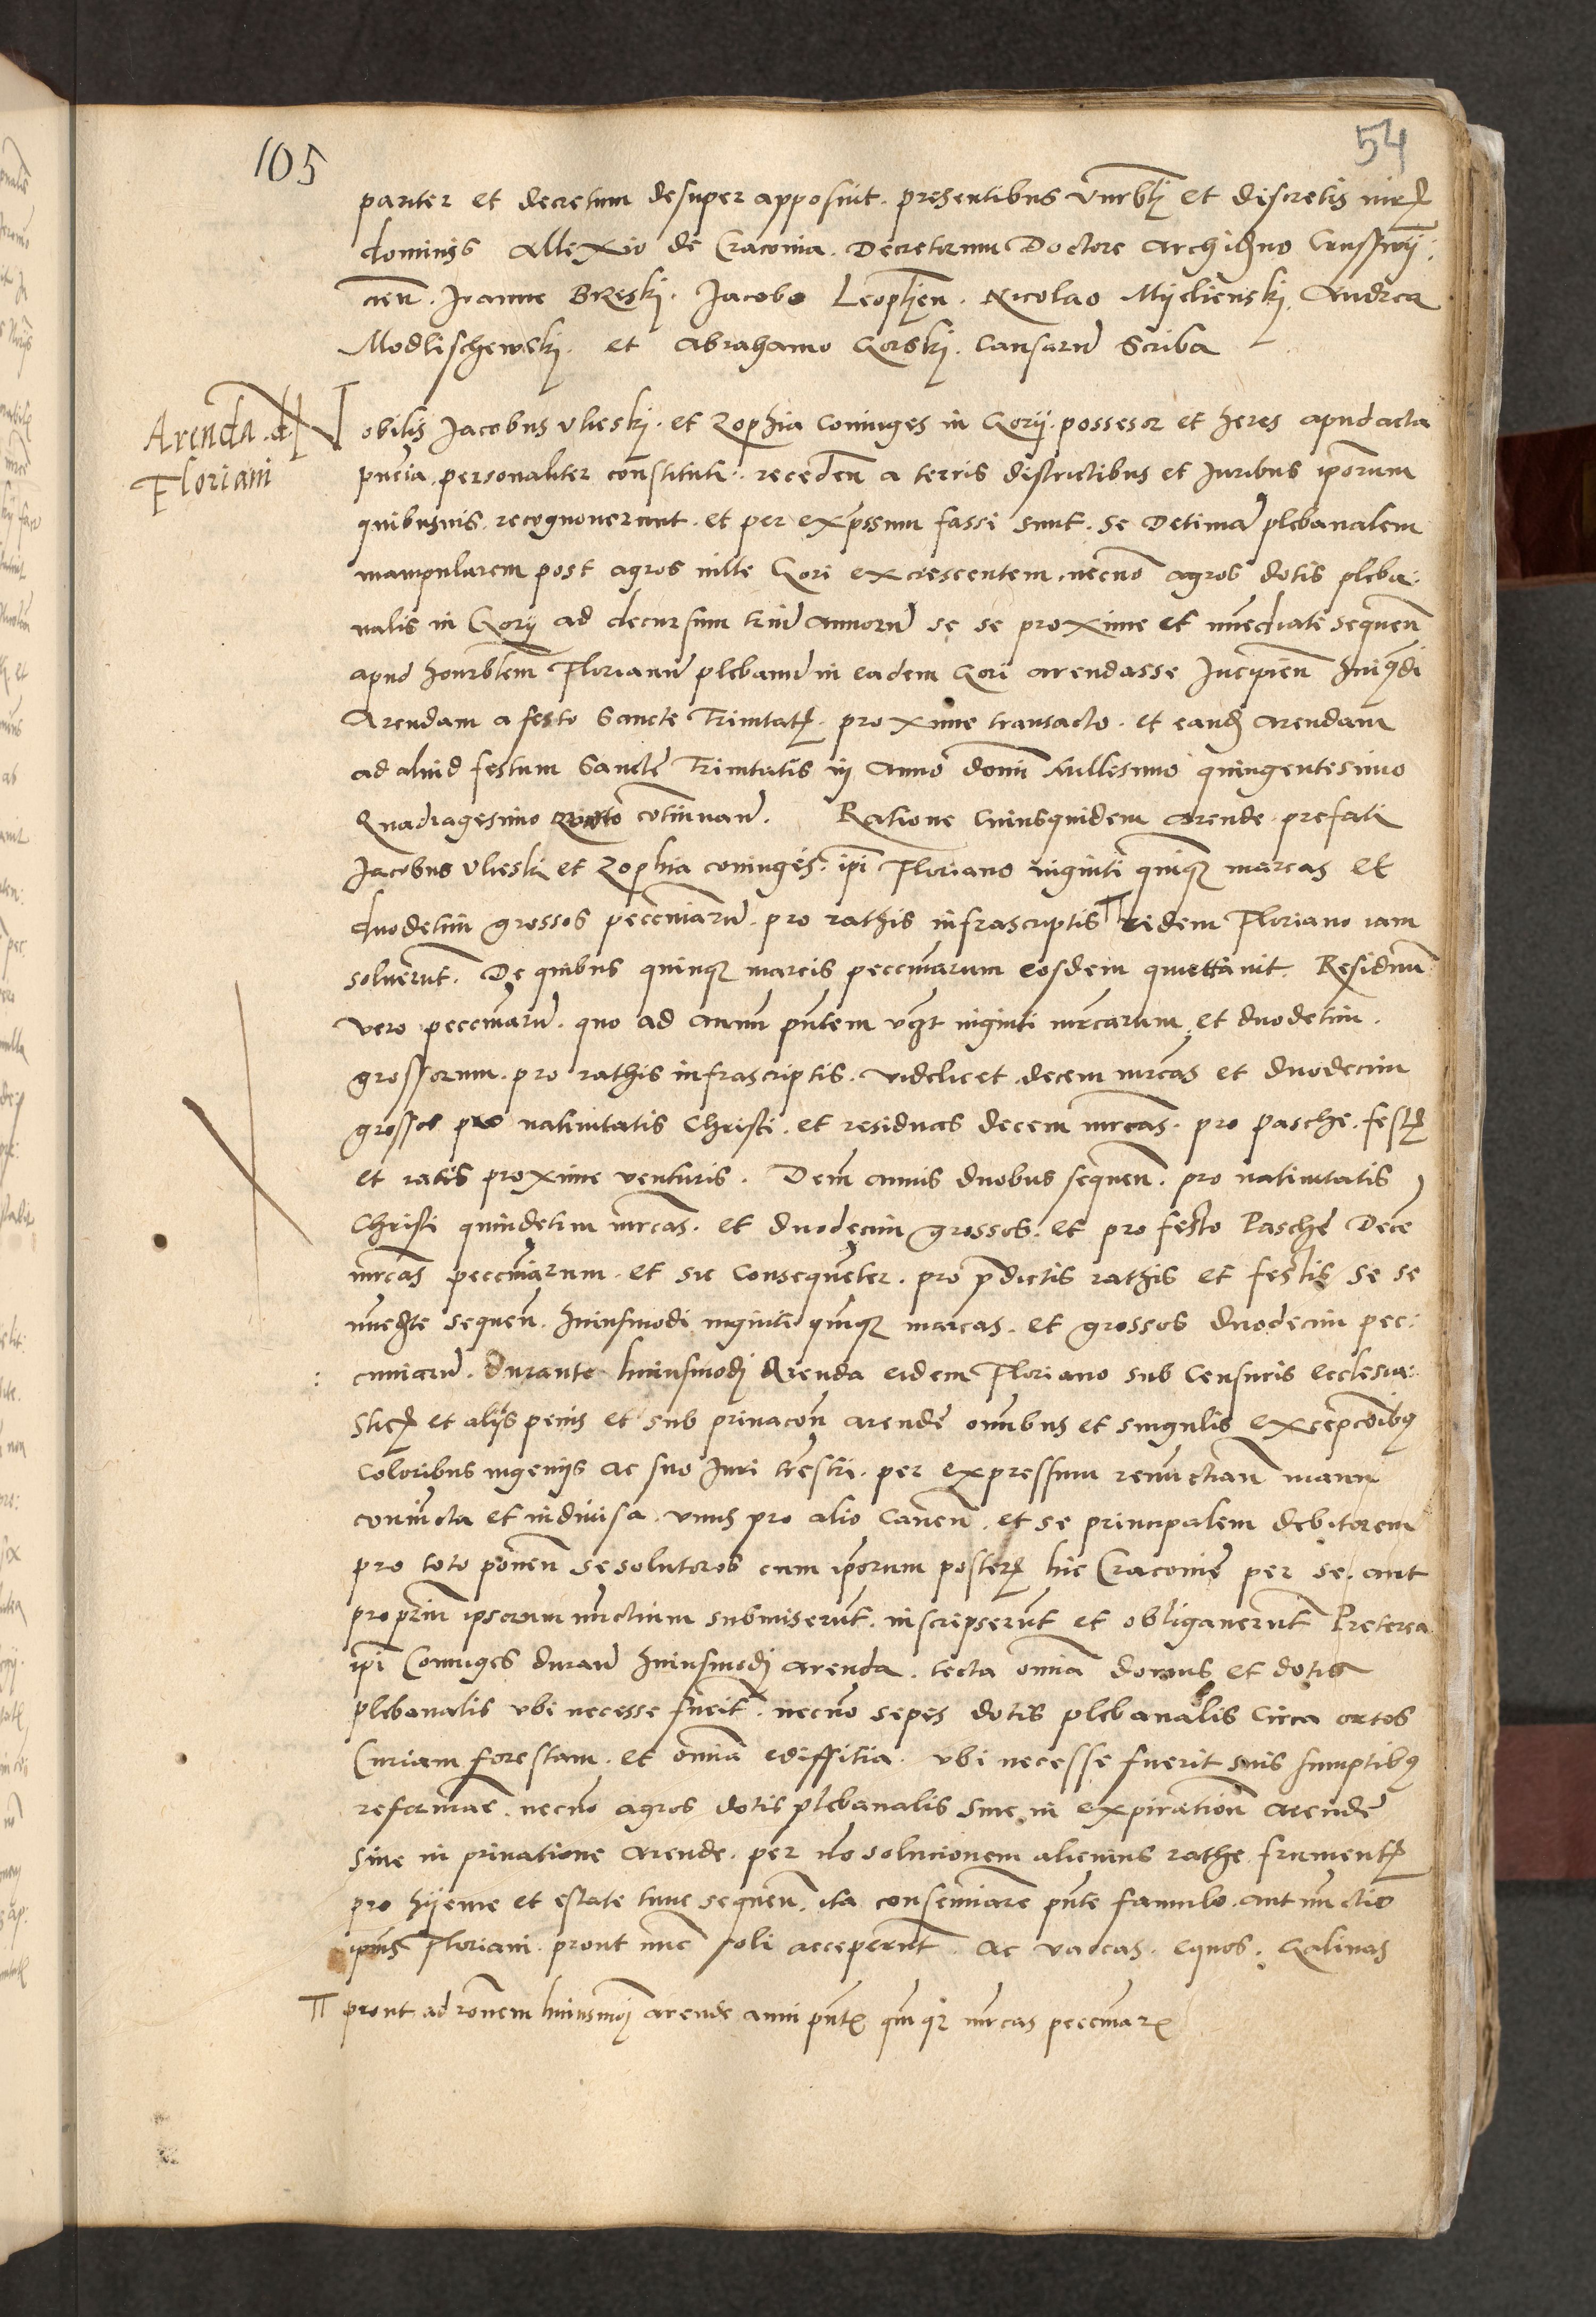 105
54
pariter et decretum desuper apposuit. presentibus vnrbl et discretis vir
dominis Allexio de Craconia. Decretorum Doctore Archidno Crusswij:
cien. Joanne Breski. Jacobo Leopljen. Nicolao Myclienski. Andrea
Modlischewski. et Abrahamo Gorski. Causarum Scriba
Arenda. d.
Floriani
Nobilis Jacobus Vlieski. et Zophia coniuges in Gorij. possesor et heres apud acta
pncia personaliter constituti. receden a terris districtibus et Iuribus iporum
quibusuis. recognouerunt. et per expssum fassi sunt. se Decimam plebanalem
manipularem post agros ville Gori excrescentem, necno agros dotis pleba:
nalis in Gorij ad decursum trium annorum se se proxime et immediate sequen
apud honrblem Florianum plebanum in eadem Gori arendasse Incipien huiusmodi
Arendam a festo Sancte Trinitatis. proxime transacto. et eand arendam
ad aliud festum Sancte Trinitatis in Anno domi Millesimo quingentesimo
Quadragesimo Quinto cotinuan. Ratione Cuiusquidem Arende. prefati
Jacobus Vlieski et Zophia coniuges. ipi Floriano viginti quinq marcas et
duodecim grossos peccuniarum. pro rathis infrascriptis eidem Floriano iam
soluerunt. De quibus quinque marcis peccuniarum eosdem quittauit. Residuum
vero peccuniarum. quo ad annum pntem vzt viginti mrcarum. et duodecim.
grossorum. pro rathis infrascriptis. videlicet decem mrcas et duodecim
grossos pro natiuitatis Christi. et residuas decem mrcas. pro Pasche. fest
et ratis proxime venturis. Dem annis duobus sequen. pro natiuitatis
Christi quindecim mrcas. et duodecim grossos. et pro festo Pasche Dece
mrcas peccuniarum. et sic consequenter. pro pdictis rathis et festis se se
immediate sequen. huiusmodi viginti quinq marcas. et grossos duodecim pec:
cuniarum. durante huiusmodi Arenda eidem Floriano sub Censuris ecclesia:
stic et alijs penis et sub priuacon arende omnibus et singulis excepcoibus
coloribus ingenijs ac suo Iuri trestri. per expressum renunctian manu
coniuncta et indiuisa. vnus pro alio Cauen. et se principalem debitorem
pro toto ponen se solutoros cum iporum poster hic Craconie per se. aut
proprium ipsorum nunctium submiserunt. inscripserunt et obligauerunt Preterea
ipi Coniuges duran huiusmodi arenda. tecta omnia domus et dotis
plebanalis vbi necesse fuerit. necno sepes dotis plebanalis Circa ortos
Curiam forestam. et omnia ediffitia. vbi necesse fuerit suis sumptibus
reformare. necno agros dotis plebanalis siue in expiration arende
siue in priuatione arende. per no solucionem alicuius rathe frument
pro hijeme et estate tunc sequen. ita conseminare pnte famulo. aut nunctio
ipius Floriani. prout nunc soli acceperunt. ac vaccas. equos. Galinas
prout ad ronem huiusmoi arende anni pnt quinq mrcas peccuniar